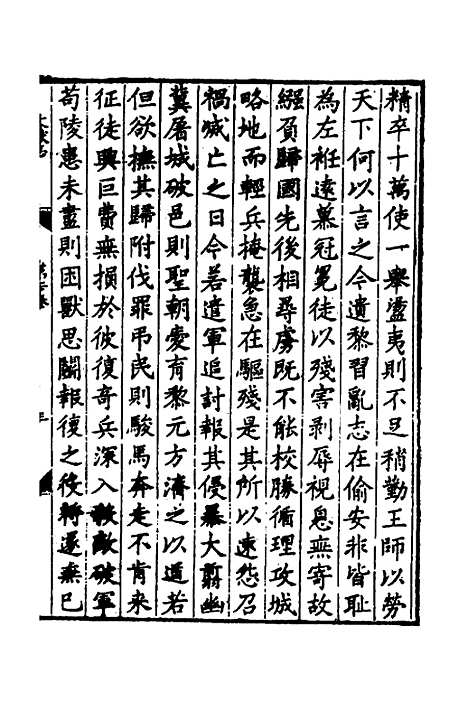 精卒十萬使一舉盪夷則不足稍勤王師以勞
天下何以言之今遺黎習亂志在偷安非皆恥
為左袵遠慕冠冕徒以殘害剥辱視息無寄故
繈負歸國先後相尋虜既不能校勝循理攻城
略地而輕兵掩襲急在驅殘是其所以速怨召
禍滅亡之日今若遣軍追討報其侵暴大翦幽
冀屠城破邑則聖朝愛育黎元方濟之以道若
但欲撫其歸附伐罪弔民則駿馬奔走不肯來
征徒興巨費無損於彼復奇兵深入殺敵破軍
苟陵患未盡則困獸思鬭報復之役將遂無已